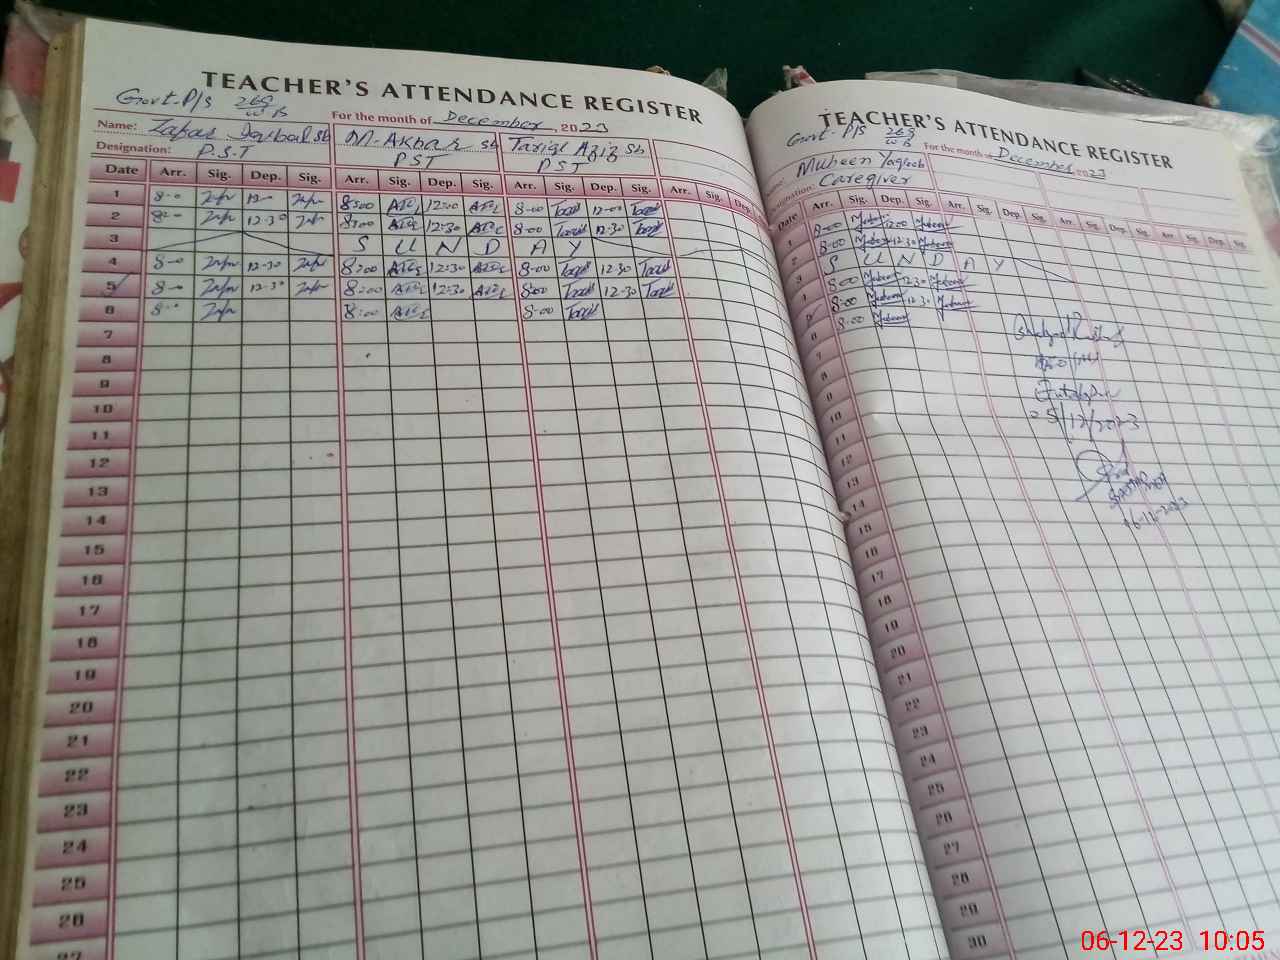 TEACHER'S ATTENDANCE REGISTER
Govt. P/S 268/WB
For the month of December, 2023
Name: Zafar Iqbal Sb M. Akbar Sb Tariq Aziz Sb
Designation: P.S.T PST PST
Date Arr. Sig. Dep. Sig. Arr. Sig. Dep. Sig. Arr. Sig. Dep. Sig. Arr. Sig. Dep.
1 8-0 12- 8:00 12:00 8-00 Tariq 12-00 Tariq
2 8-0 12-30 8:00 12:30 8-00 Tariq 12-30 Tariq
3 S U N D A Y
4 8-0 12-30 8:00 12:30 8-00 Tariq 12-30 Tariq
5 8-0 12-30 8:00 12:30 8:00 Tariq 12-30 Tariq
6 8-0 8:00 8-00 Tariq
7
8
9
10
11
12
13
14
15
16
17
18
19
20
21
22
23
24
25
26
27
TEACHER'S ATTENDANCE REGISTER
Govt. P/S 268/WB
For the month of December 2023
Mubeen Yaqoob
Designation: Caregiver
Date Arr. Sig. Dep. Sig. Arr. Sig. Dep. Sig. Arr. Sig. Dep. Sig. Arr. Sig. Dep. Sig.
1 8-00 Mubeen 12:00 Mubeen
2 8-00 Mubeen 12-30 Mubeen
3 S U N D A Y
4 8-00 Mubeen 12-30 Mubeen
5 8-00 Mubeen 12-30 Mubeen
6 8-00 Mubeen
7
8
9
10
11
12
13
14
15
16
17
18
19
20
21
22
23
24
25
26
27
28
29
30
5/12/2023
06-12-23 10:05